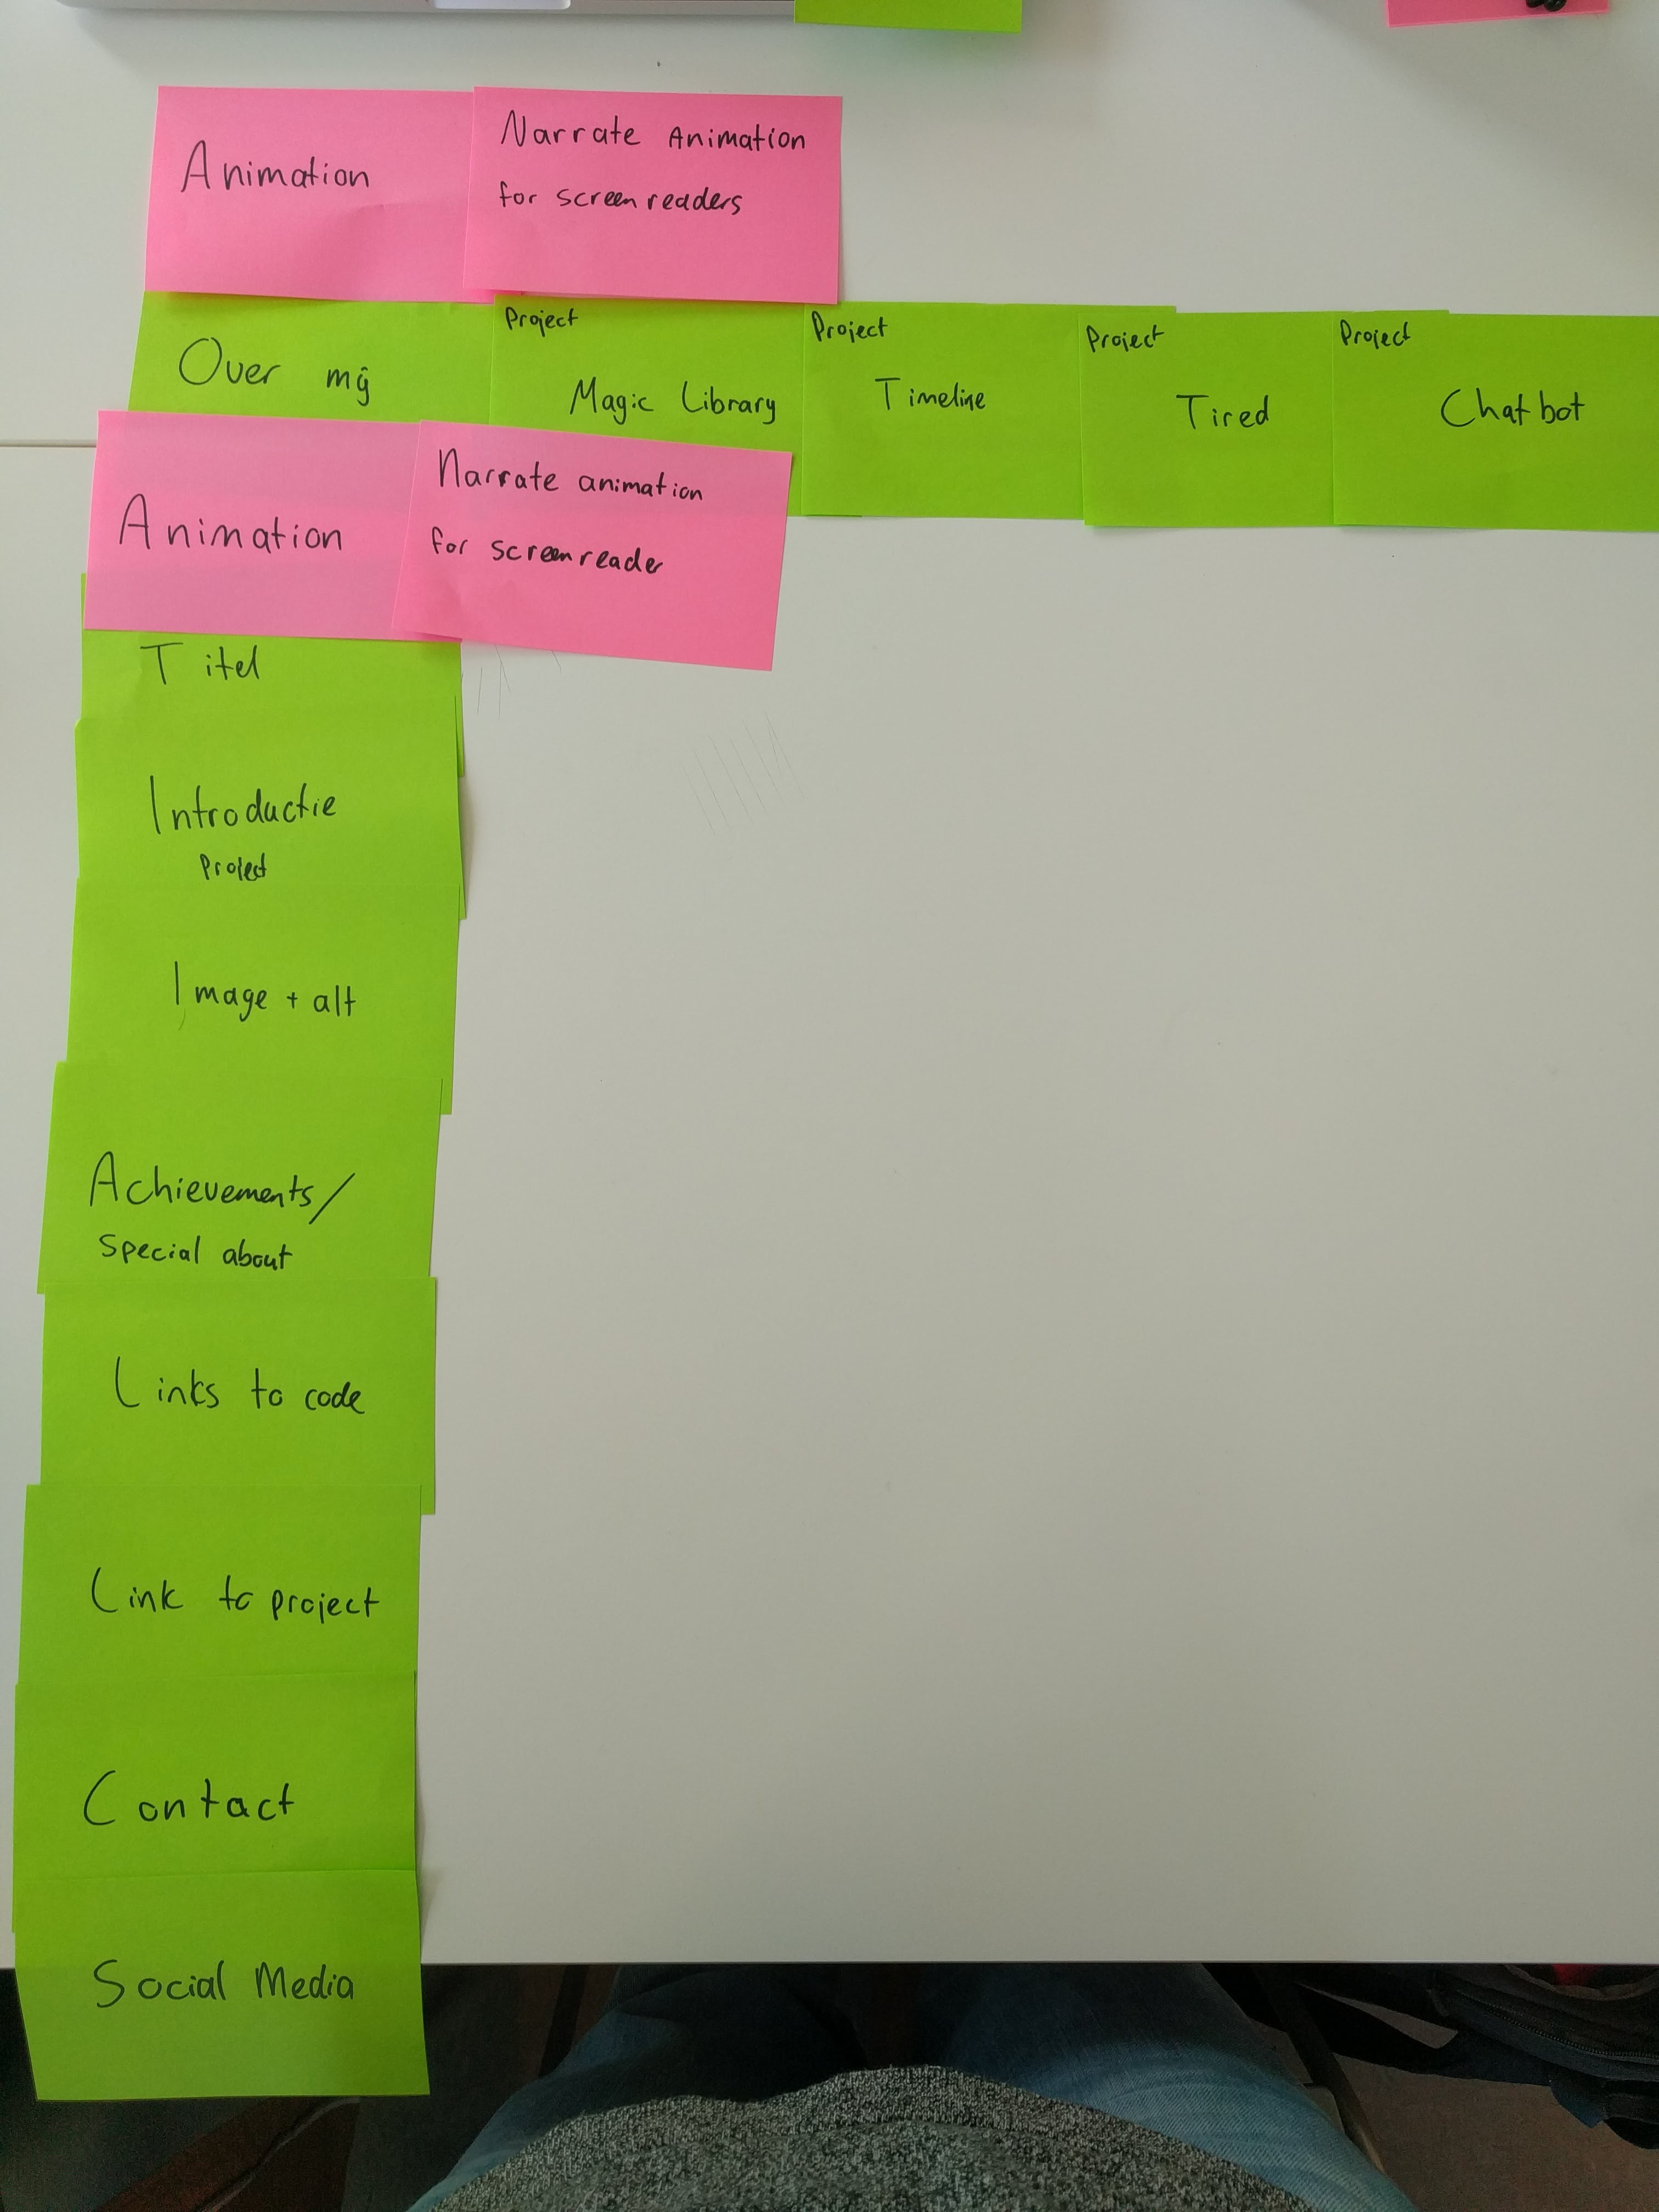 Animation
Narrate Animation
for screenreaders
Over mij
Project
Magic Library
Project
Timeline
Project
Tired
Project
Chatbot
Animation
Narrate animation
for screenreader
Titel
Introductie
Project
Image + alt
Achievements/
Special about
Links to code
Link to project
Contact
Social Media